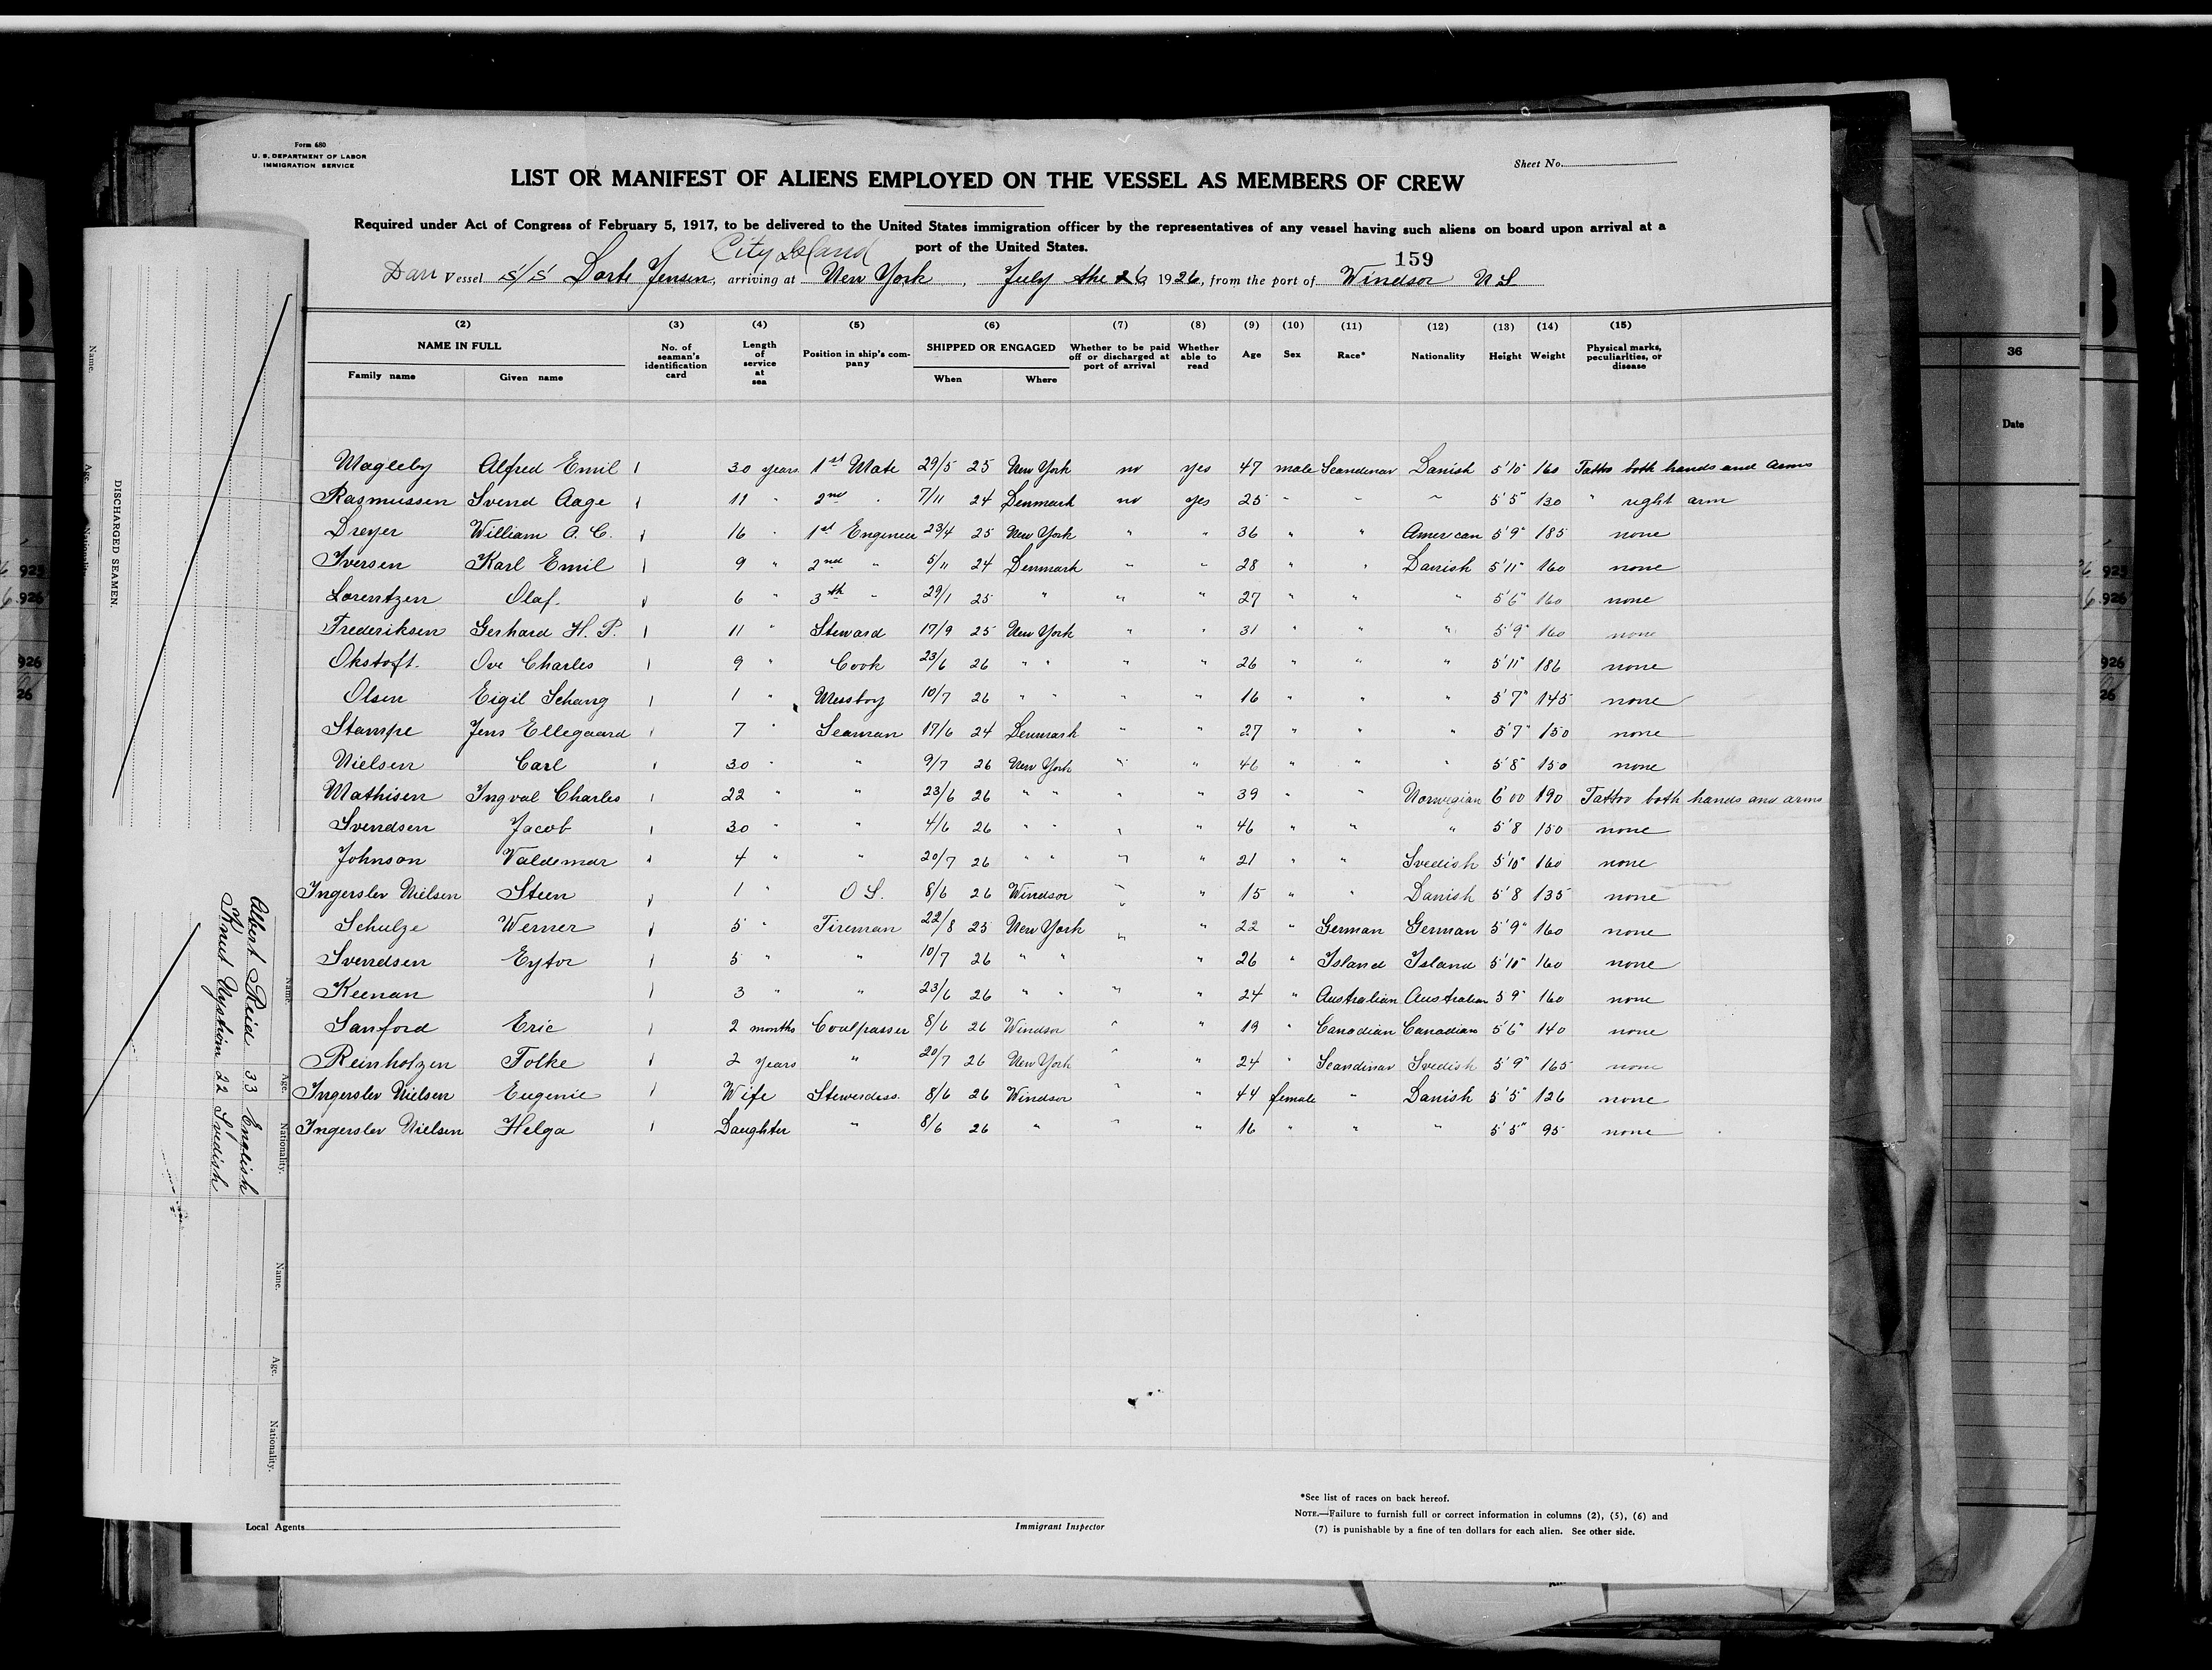 Form 680
U. S. DEPARTMENT OF LABOR
IMMIGRATION SERVICE
Sheet No.
LIST OR MANIFEST OF ALIENS EMPLOYED ON THE VESSEL AS MEMBERS OF CREW
Required under Act of Congress of February 5, 1917, to be delivered to the United States immigration officer by the representatives of any vessel having such aliens on board upon arrival at a
port of the United States.
City Island
159
Dan Vessel S/S Dorte Jensen, arriving at New York, July the 26 1926, from the port of Windsor N S
(2) (3) (4) (5) (6) (7) (8) (9) (10) (11) (12) (13) (14) (15)
NAME IN FULL Family name Given name No. of seaman's identification card Length of service at sea Position in ship's company SHIPPED OR ENGAGED When Where Whether to be paid off or discharged at port of arrival Whether able to read Age Sex Race* Nationality Height Weight Physical marks, peculiarities, or disease
Magleby Alfred Emil 1 30 years 1st Mate 29/5 25 New York no yes 47 male Scandinav Danish 5'10" 160 Tatto both hands and arms
Rasmussen Svend Aage 1 11 " 2nd " 7/11 24 Denmark no yes 25 " " " 5'5" 130 " right arm
Dreyer William A. C. 1 16 " 1st Engineer 23/4 25 New York " " 36 " " American 5'9" 185 none
Iversen Karl Emil 1 9 " 2nd " 5/11 24 Denmark " " 28 " " Danish 5'11" 160 none
Lorentzen Olaf. 1 6 " 3th " 29/1 25 " " " 27 " " " 5'6" 160 none
Frederiksen Gerhard H. P. 1 11 " Steward 17/9 25 New York " " 31 " " " 5'9" 160 none
Okstoft. Ove Charles 1 9 " Cook 23/6 26 " " " " 26 " " " 5'11" 186 none
Olsen Eigil Schang 1 1 " Messboy 10/7 26 " " " " 16 " " " 5'7" 145 none
Stampe Jens Ellegaard 1 7 " Seaman 17/6 24 Denmark " " 27 " " " 5'7" 150 none
Nielsen Carl 1 30 " " 9/7 26 New York " " 46 " " " 5'8" 150 none
Mathisen Ingval Charles 1 22 " " 23/6 26 " " " " 39 " " Norwegian 6'00 190 Tattoo both hands and arms
Svendsen Jacob 1 30 " " 4/6 26 " " " " 46 " " " 5'8 150 none
Johnson Valdemar 1 4 " " 20/7 26 " " " " 21 " " Svedish 5'10" 160 none
Ingerslev Nielsen Steen 1 1 " O S. 8/6 26 Windsor " " 15 " " Danish 5'8 135 none
Schulze Werner 1 5 " Fireman 22/8 25 New York " " 22 " German German 5'9" 160 none
Svendsen Eytor 1 5 " " 10/7 26 " " " 26 " Island Island 5'10" 160 none
Keenan 1 3 " " 23/6 26 " " " " 24 " Australian Australian 5'9" 160 none
Sanford Eric 1 2 months Coalpasser 8/6 26 Windsor " " 19 " Canadian Canadian 5'6" 140 none
Reinholzen Folke 1 2 years " 20/7 26 New York " " 24 " Scandinav Svedish 5'9" 165 none
Ingerslev Nielsen Eugenie 1 Wife Stewerdess. 8/6 26 Windsor " " 44 female " Danish 5'5" 126 none
Ingerslev Nielsen Helga 1 Daughter " 8/6 26 " " " 16 " " " 5'5" 95 none
*See list of races on back hereof.
NOTE.—Failure to furnish full or correct information in columns (2), (5), (6) and
(7) is punishable by a fine of ten dollars for each alien. See other side.
Local Agents
Immigrant Inspector
DISCHARGED SEAMEN.
Name. Age. Nationality.
Name. Age. Nationality.
Albert Reid 33 English
Knut Nystrøm 22 Svedish
Name. Age. Nationality.
36
Date
925
926
926
26
925
926
926
26